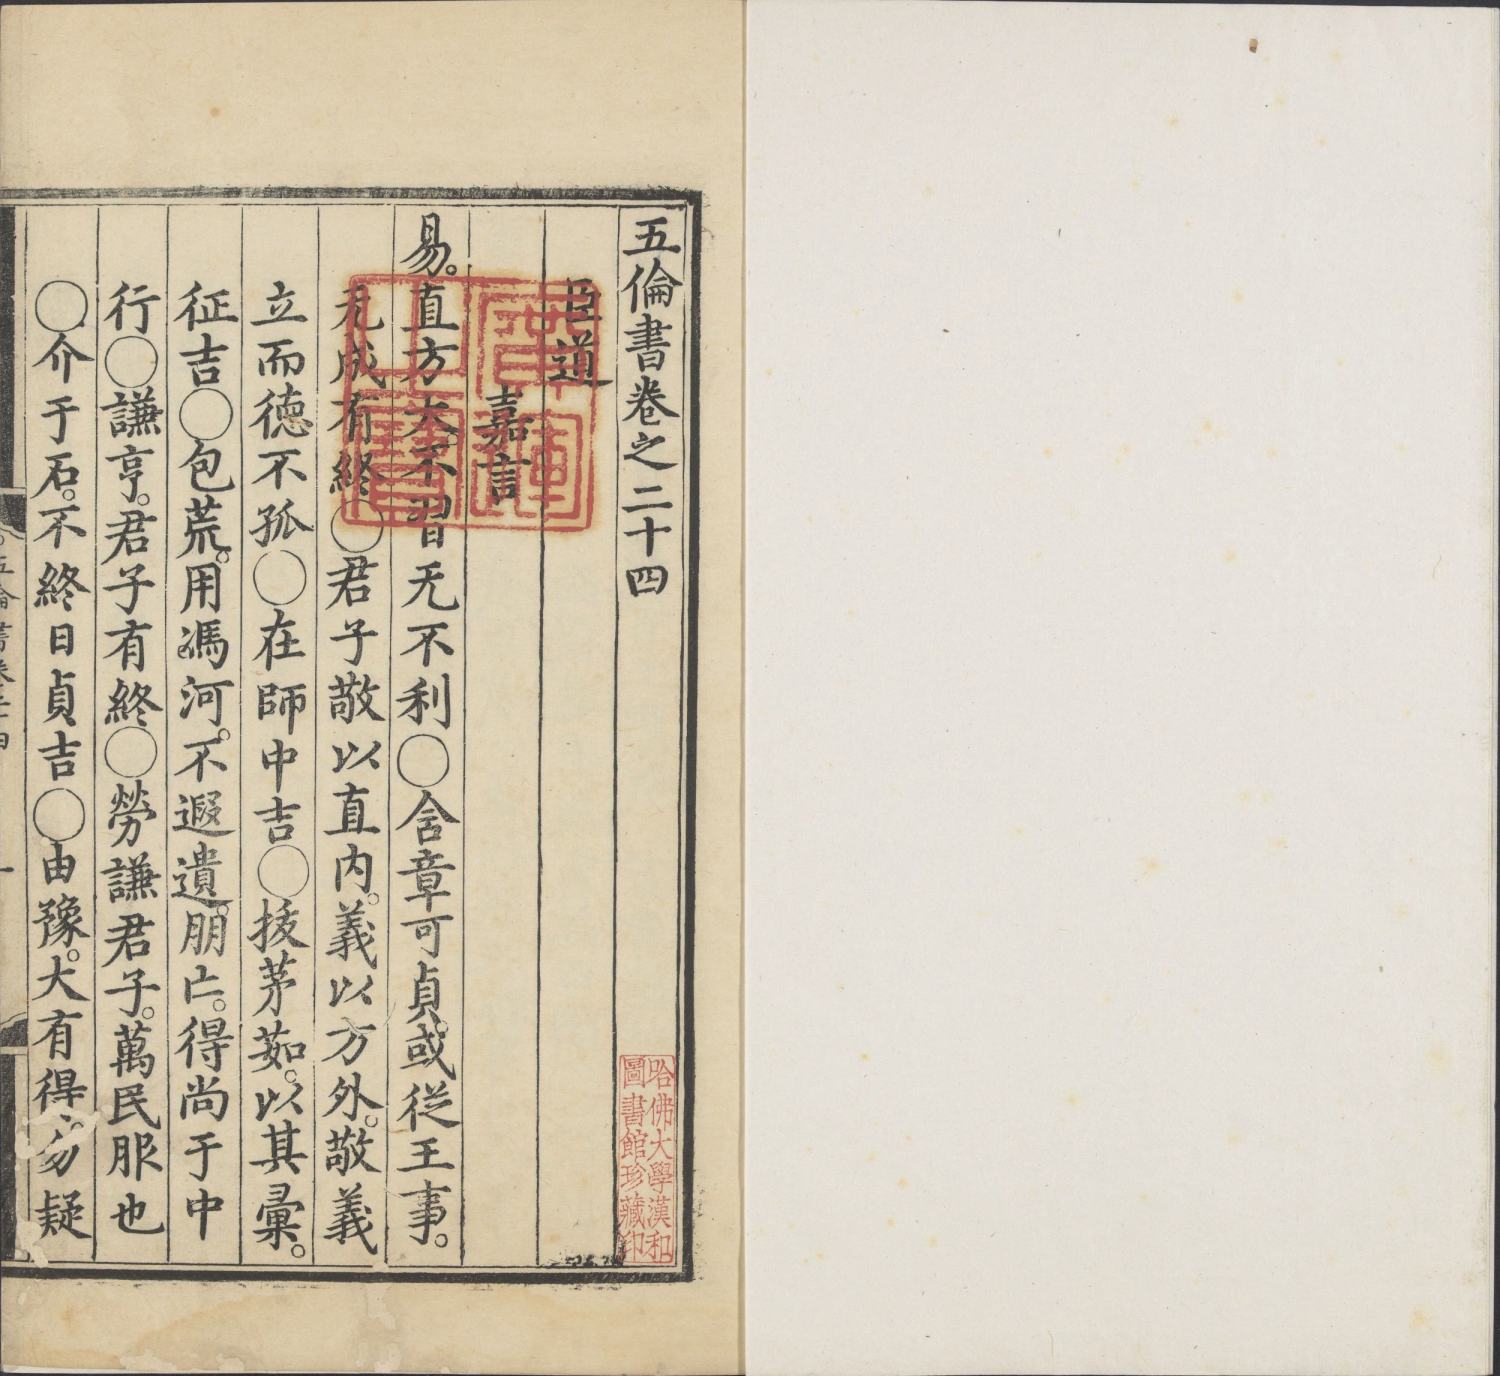 五倫書卷之二十四
臣道
嘉言
易。直方大。不習无不利〇含章可貞。或從王事。
无成有終〇君子敬以直內。義以方外。敬義
立而德不孤〇在師中吉〇拔茅茹。以其彙。
征吉〇包荒。用馮河。不遐遺。朋亡。得尚于中
行〇謙亨。君子有終〇勞謙君子。萬民服也
〇介于石。不終日貞吉〇由豫。大有得。勿疑
五倫書卷二十四
一
哈佛大學漢和
圖書館珍藏印